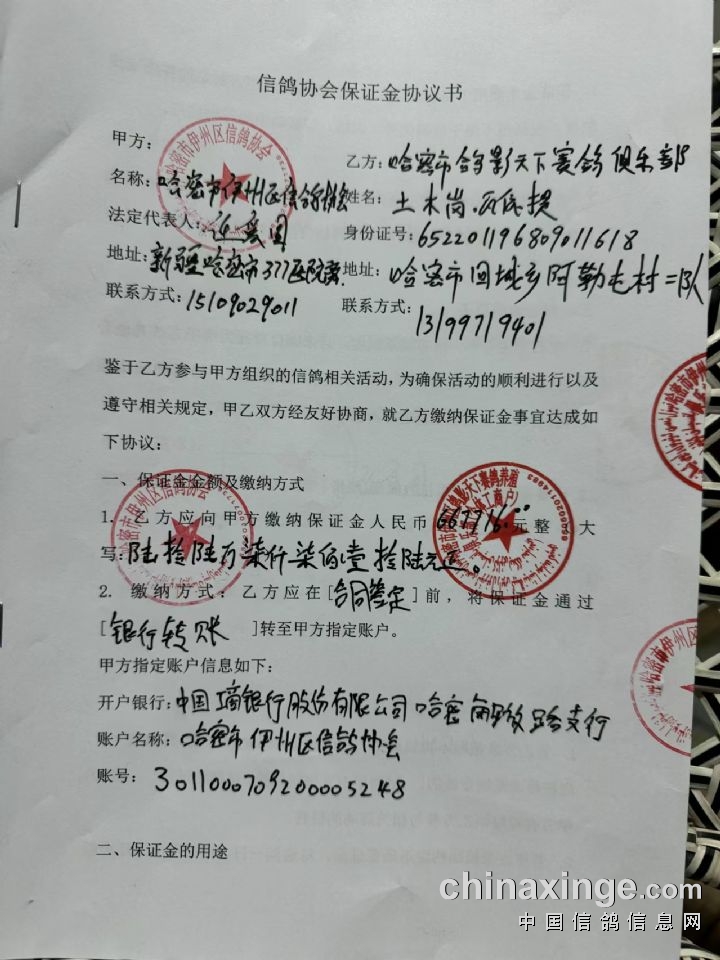 信鸽协会保证金协议书
甲方：
名称：哈密市伊州区信鸽协会
法定代表人：
地址：新疆哈密市377医院旁
联系方式：15109029011
乙方：哈密市鸽影天下赛鸽俱乐部
姓名：
身份证号：652201196809011618
地址：哈密市回城乡阿勒屯村二队
联系方式：
13199719401
鉴于乙方参与甲方组织的信鸽相关活动，为确保活动的顺利进行以及
遵守相关规定，甲乙双方经友好协商，就乙方缴纳保证金事宜达成如
下协议：
一、保证金金额及缴纳方式
1. 乙方应向甲方缴纳保证金人民币 667716.00 元整，大
写：陆拾陆万柒仟柒佰壹拾陆元整。
2. 缴纳方式：乙方应在[合同签定]前，将保证金通过
[银行转账]转至甲方指定账户。
甲方指定账户信息如下：
开户银行：中国工商银行股份有限公司哈密解放路支行
账户名称：哈密市伊州区信鸽协会
账号：3011000709200005248
二、保证金的用途
哈密市伊州区信鸽协会
哈密市伊州区信鸽协会
chinaxinge.com
中国信鸽信息网